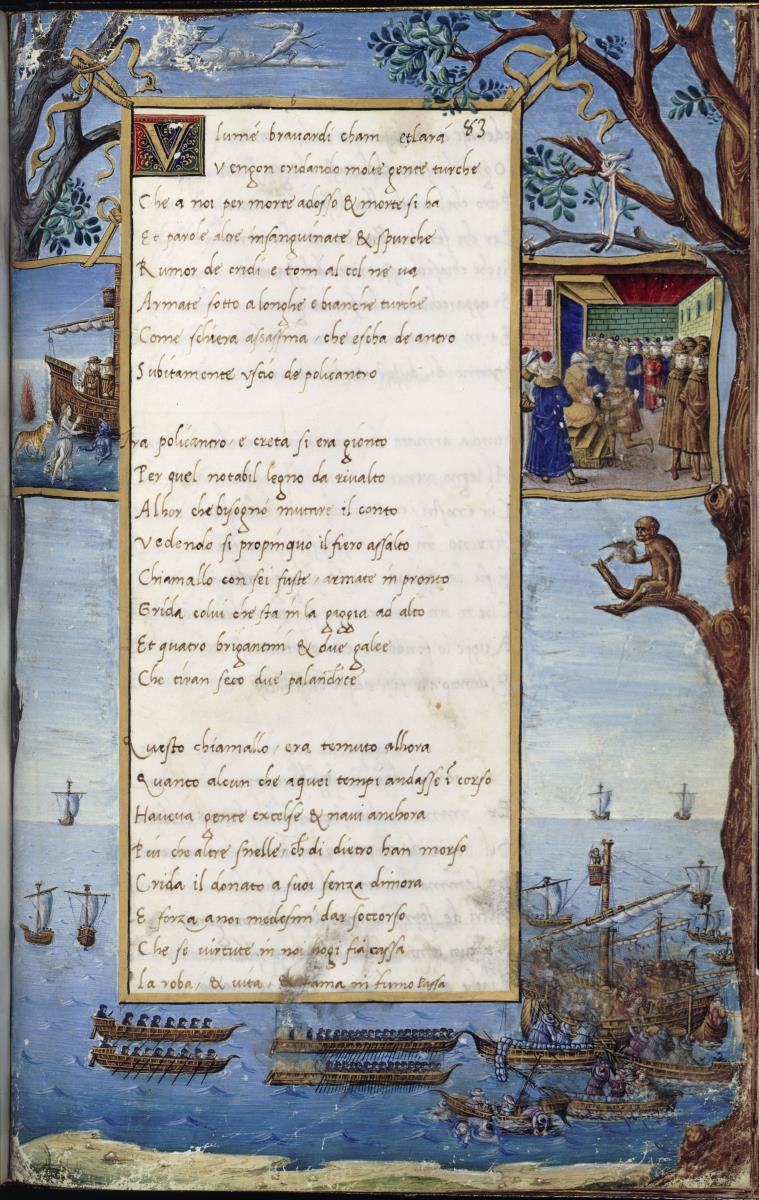 83
Vlumé bravardi cham etlará
Vengon cridando molte gente turche
Che a noi per morte adosso & morte si ha
Et parole altre insanguinate & spurche
Rumor de cridi e tom al cel ne va
Armate sotto a longhe e bianche turche
Come schiera assassina, che escha de antro
Subitamente uscio de policantro
Fra policantro, e creta si era gionto
Per quel notabil legno da rivalto
Alhor che bisognò mutare il conto
Vedendo si propinquo il fiero assalto
Chiamallo con sei fuste, armate in pronto
Grida colui che sta in la gaggia ad alto
Et quatro brigantini & due galee
Che tiran seco due palandree
Questo chiamallo, era temuto alhora
Quanto alcun che a quei tempi andasse ī corso
Haveva gente excelse & navi anchora
Più che altre snelle, ch̄ di dietro han morso
Crida il donato a suoi senza dimora
E forza a noi medesmi dar soccorso
Che se virtute in noi hogi fia cassa
La roba, & vita, & fama in fumo passa